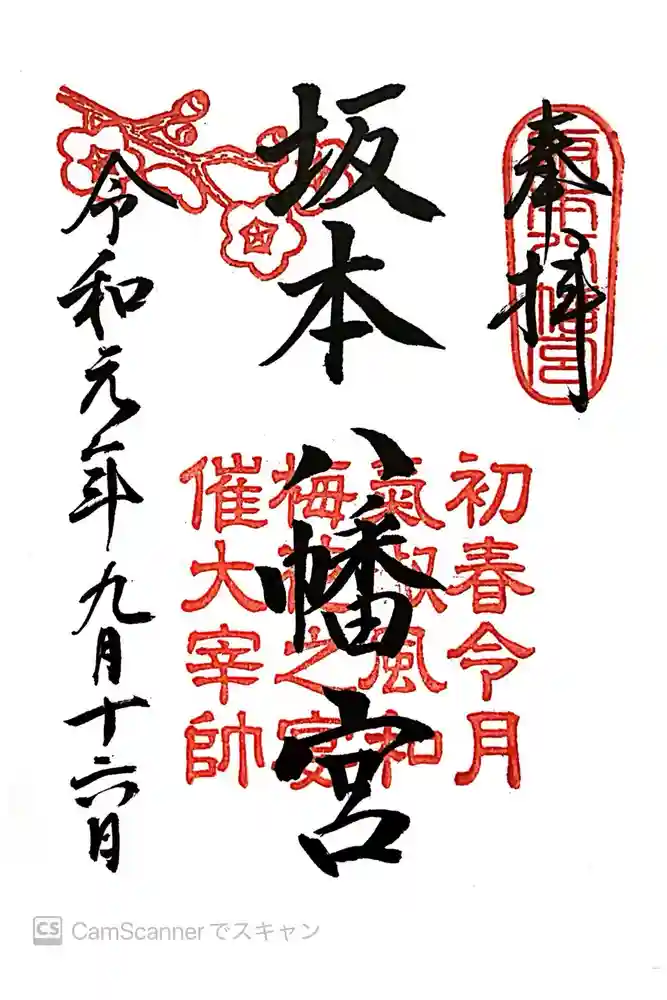 奉拝
坂本八幡宮
初春令月
氣淑風和
梅花之宴
催大宰帥
令和元年九月十六日
CS CamScanner でスキャン